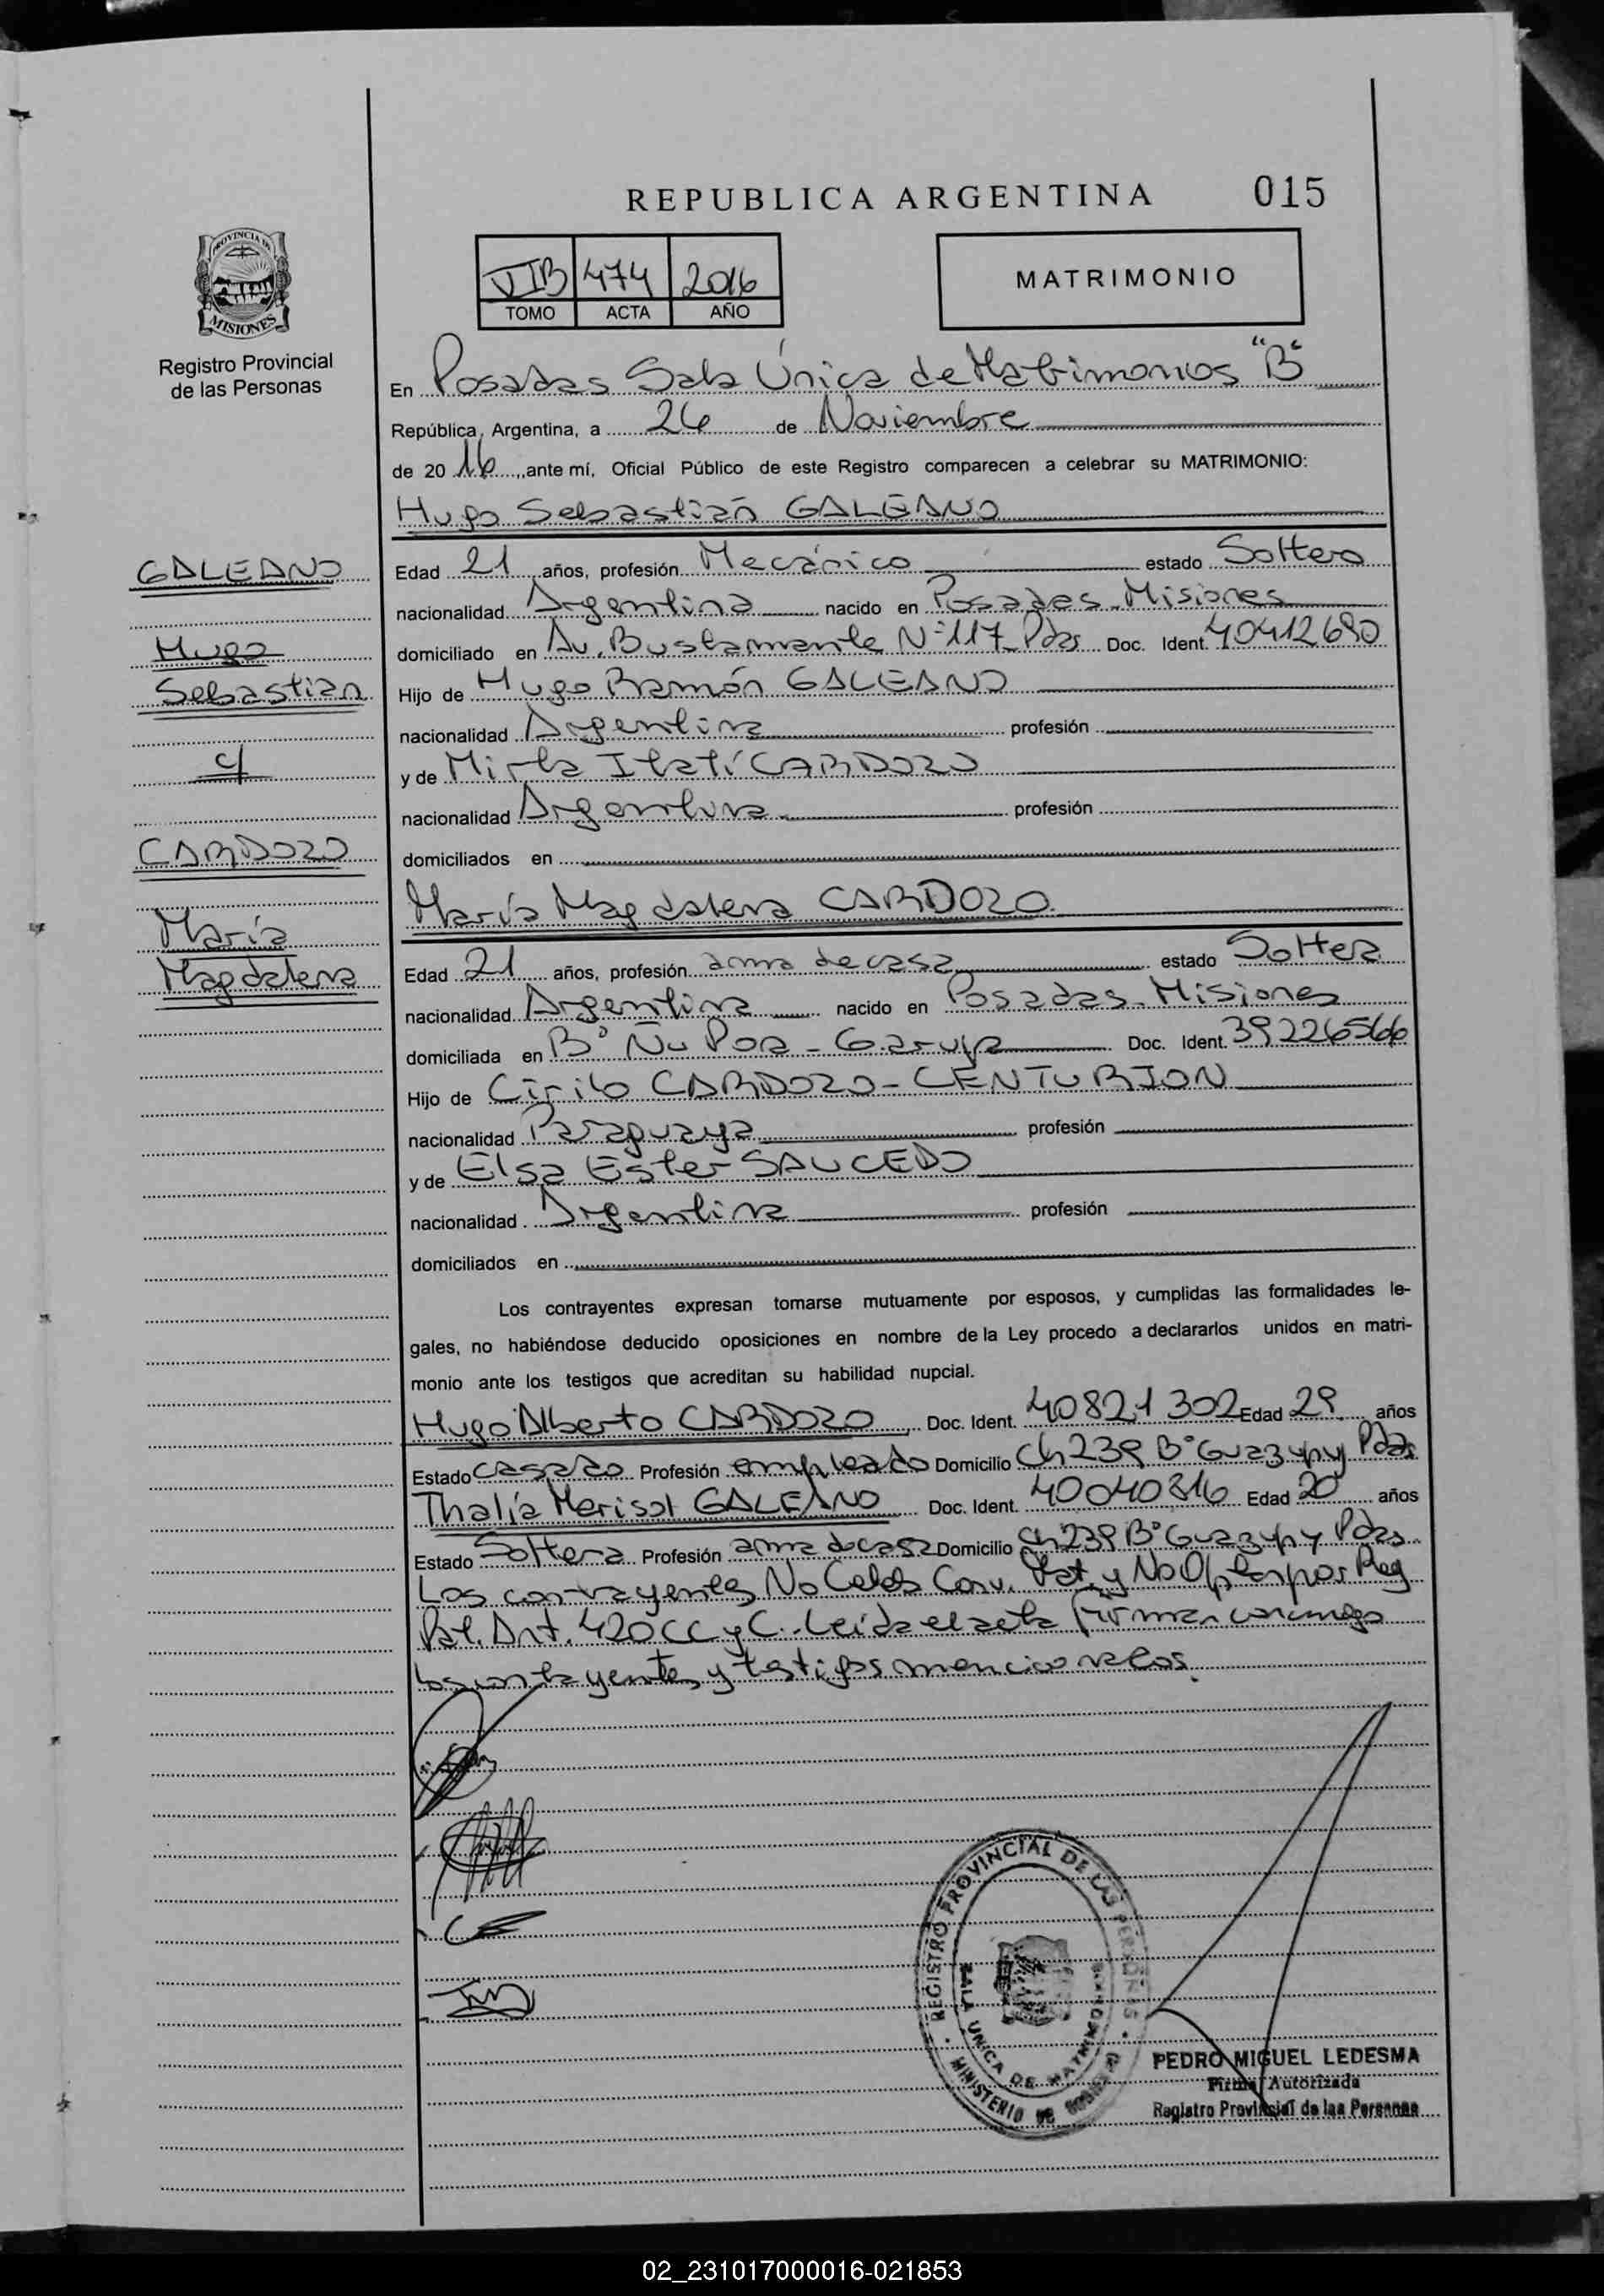 REPUBLICA ARGENTINA 015
PROVINCIA DE
MISIONES
Registro Provincial
de las Personas
VIB 474 2016
TOMO ACTA AÑO
MATRIMONIO
En Posadas Sala Única de Matrimonios "B"
República, Argentina, a 26 de Noviembre
de 20 16, ante mí, Oficial Público de este Registro comparecen a celebrar su MATRIMONIO:
Hugo Sebastián GALEANO
GALEANO
Hugo
Sebastian
c/
CARDOZO
María
Magdalena
Edad 21 años, profesión Mecánico estado Soltero
nacionalidad Argentina nacido en Posadas-Misiones
domiciliado en Av. Bustamante N° 117 - Pdas Doc. Ident. 40412690
Hijo de Hugo Ramón GALEANO
nacionalidad Argentina profesión
y de Mirta Itatí CARDOZO
nacionalidad Argentina profesión
domiciliados en
María Magdalena CARDOZO
Edad 21 años, profesión ama de casa estado Soltera
nacionalidad Argentina nacido en Posadas-Misiones
domiciliada en B° Ñu Pora - Garupa Doc. Ident. 39226566
Hijo de Cirilo CARDOZO-CENTURION
nacionalidad Paraguaya profesión
y de Elsa Ester SAUCEDO
nacionalidad Argentina profesión
domiciliados en
Los contrayentes expresan tomarse mutuamente por esposos, y cumplidas las formalidades le-
gales, no habiéndose deducido oposiciones en nombre de la Ley procedo a declararlos unidos en matri-
monio ante los testigos que acreditan su habilidad nupcial.
Hugo Alberto CARDOZO Doc. Ident. 40821302 Edad 29 años
Estado casado Profesión empleado Domicilio Ch 239 B° Guazupy Pdas
Thalía Merisol GALEANO Doc. Ident. 40040816 Edad 20 años
Estado Soltera Profesión ama de casa Domicilio Ch 239 B° Guazupy Pdas
Los contrayentes No Celeb Conv. Mat. y No Optan por Reg
Pat. Art. 420 CC y C. Leída el acta firman conmigo
los contrayentes y testigos mencionados.
REGISTRO PROVINCIAL DE LAS PERSONAS
SALA UNICA DE MATRIMONIOS
MINISTERIO DE GOBIERNO
PEDRO MIGUEL LEDESMA
Firma Autorizada
Registro Provincial de las Personas
02_231017000016-021853